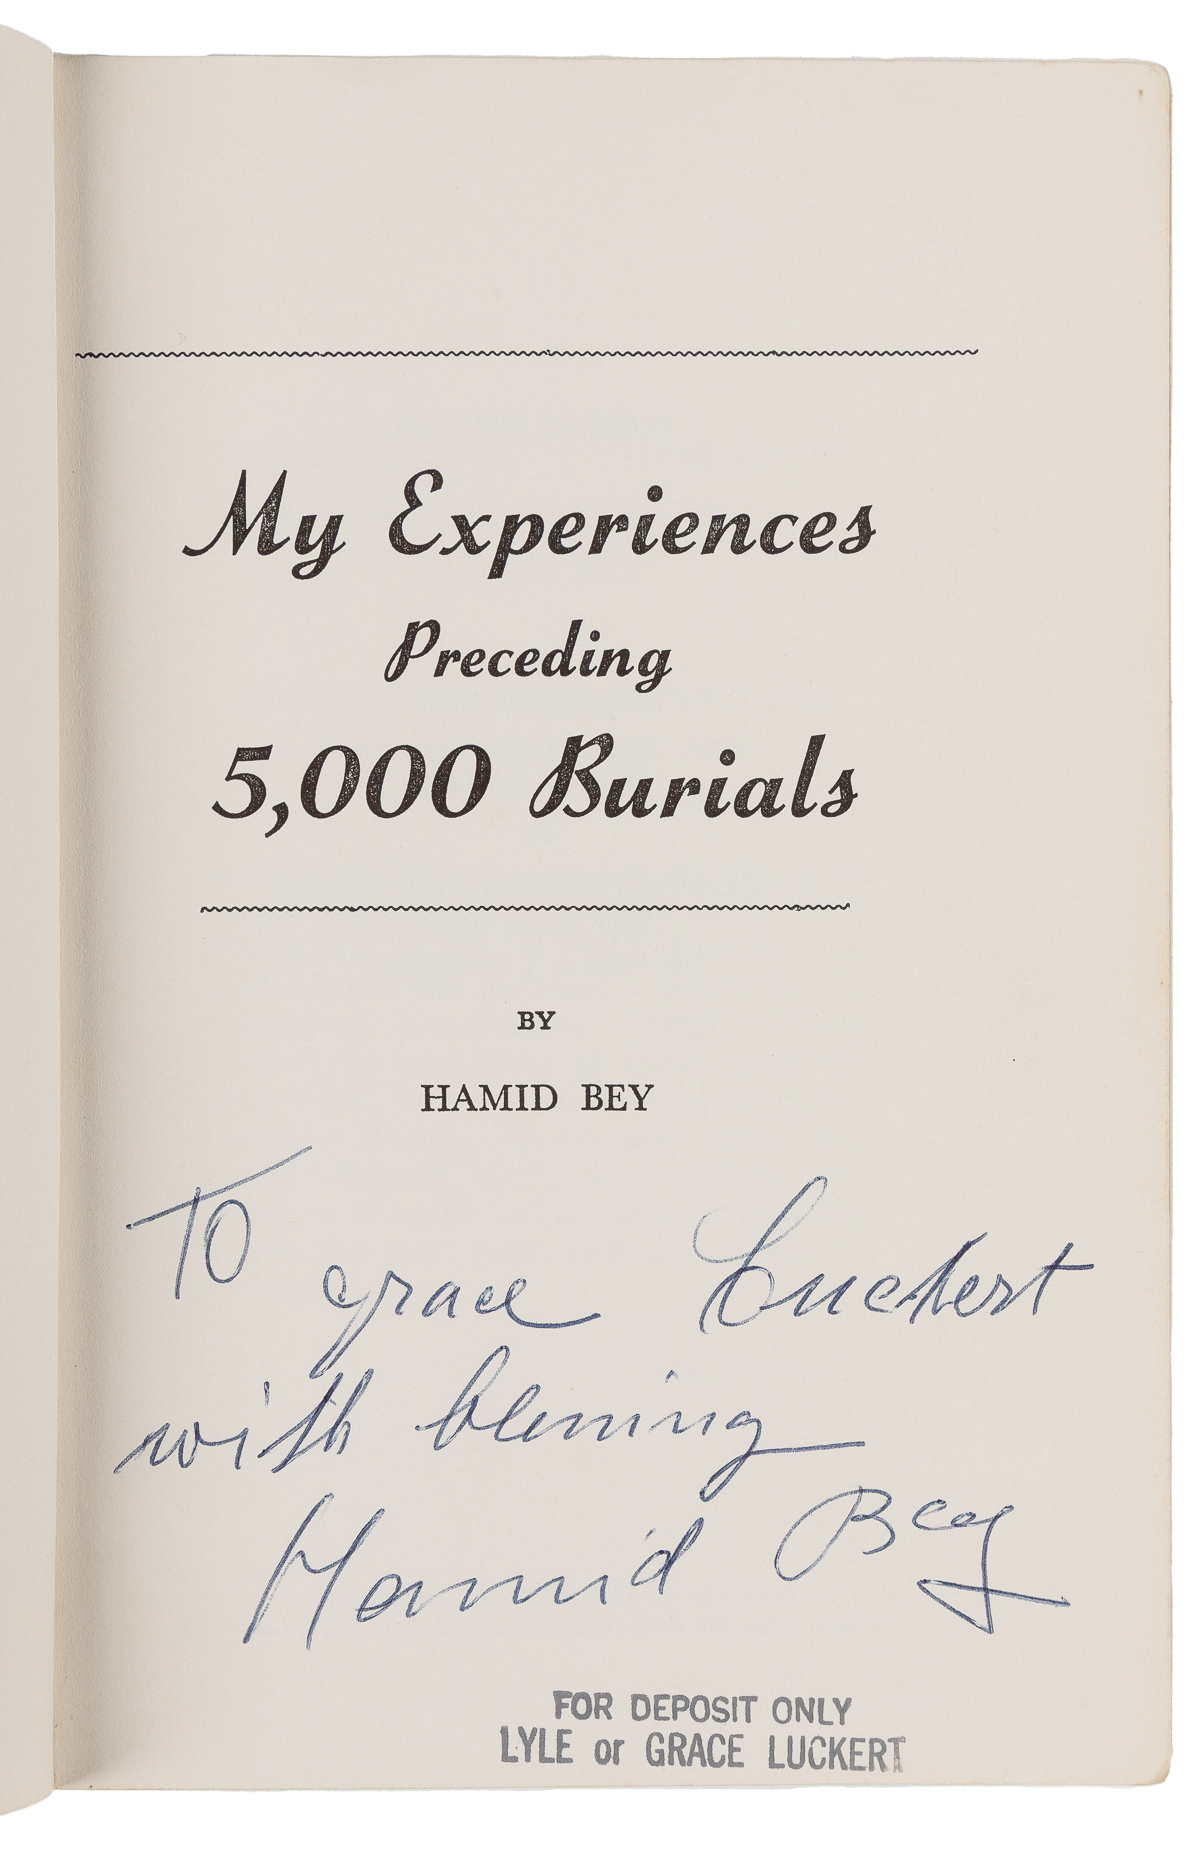 My Experiences
Preceding
5,000 Burials
BY
HAMID BEY
To grace Luckert
with blessing
Hamid Bey
FOR DEPOSIT ONLY
LYLE or GRACE LUCKERT